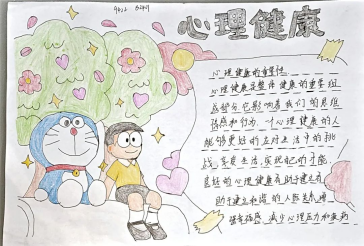 心理健康
心理健康的重要性
心理健康是整体健康的重要组
成部分,它影响着我们的思维
情感和行为,一个心理健康的人
能够更好的应对生活中的挑
战,享受生活,实现自己的
良好的心理健康有助于建立
助于建立和谐的人际关系,增
减少心理压力和疾病